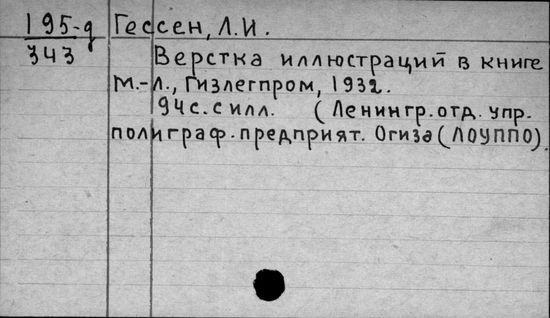 195-д Гессен, Л.И.
343 Верстка иллюстраций в книге
М.-Л., Гизлегпром, 1932.
94с. с илл. (Ленингр. отд. упр.
полиграф. предприят. Огиза (ЛОУППО).